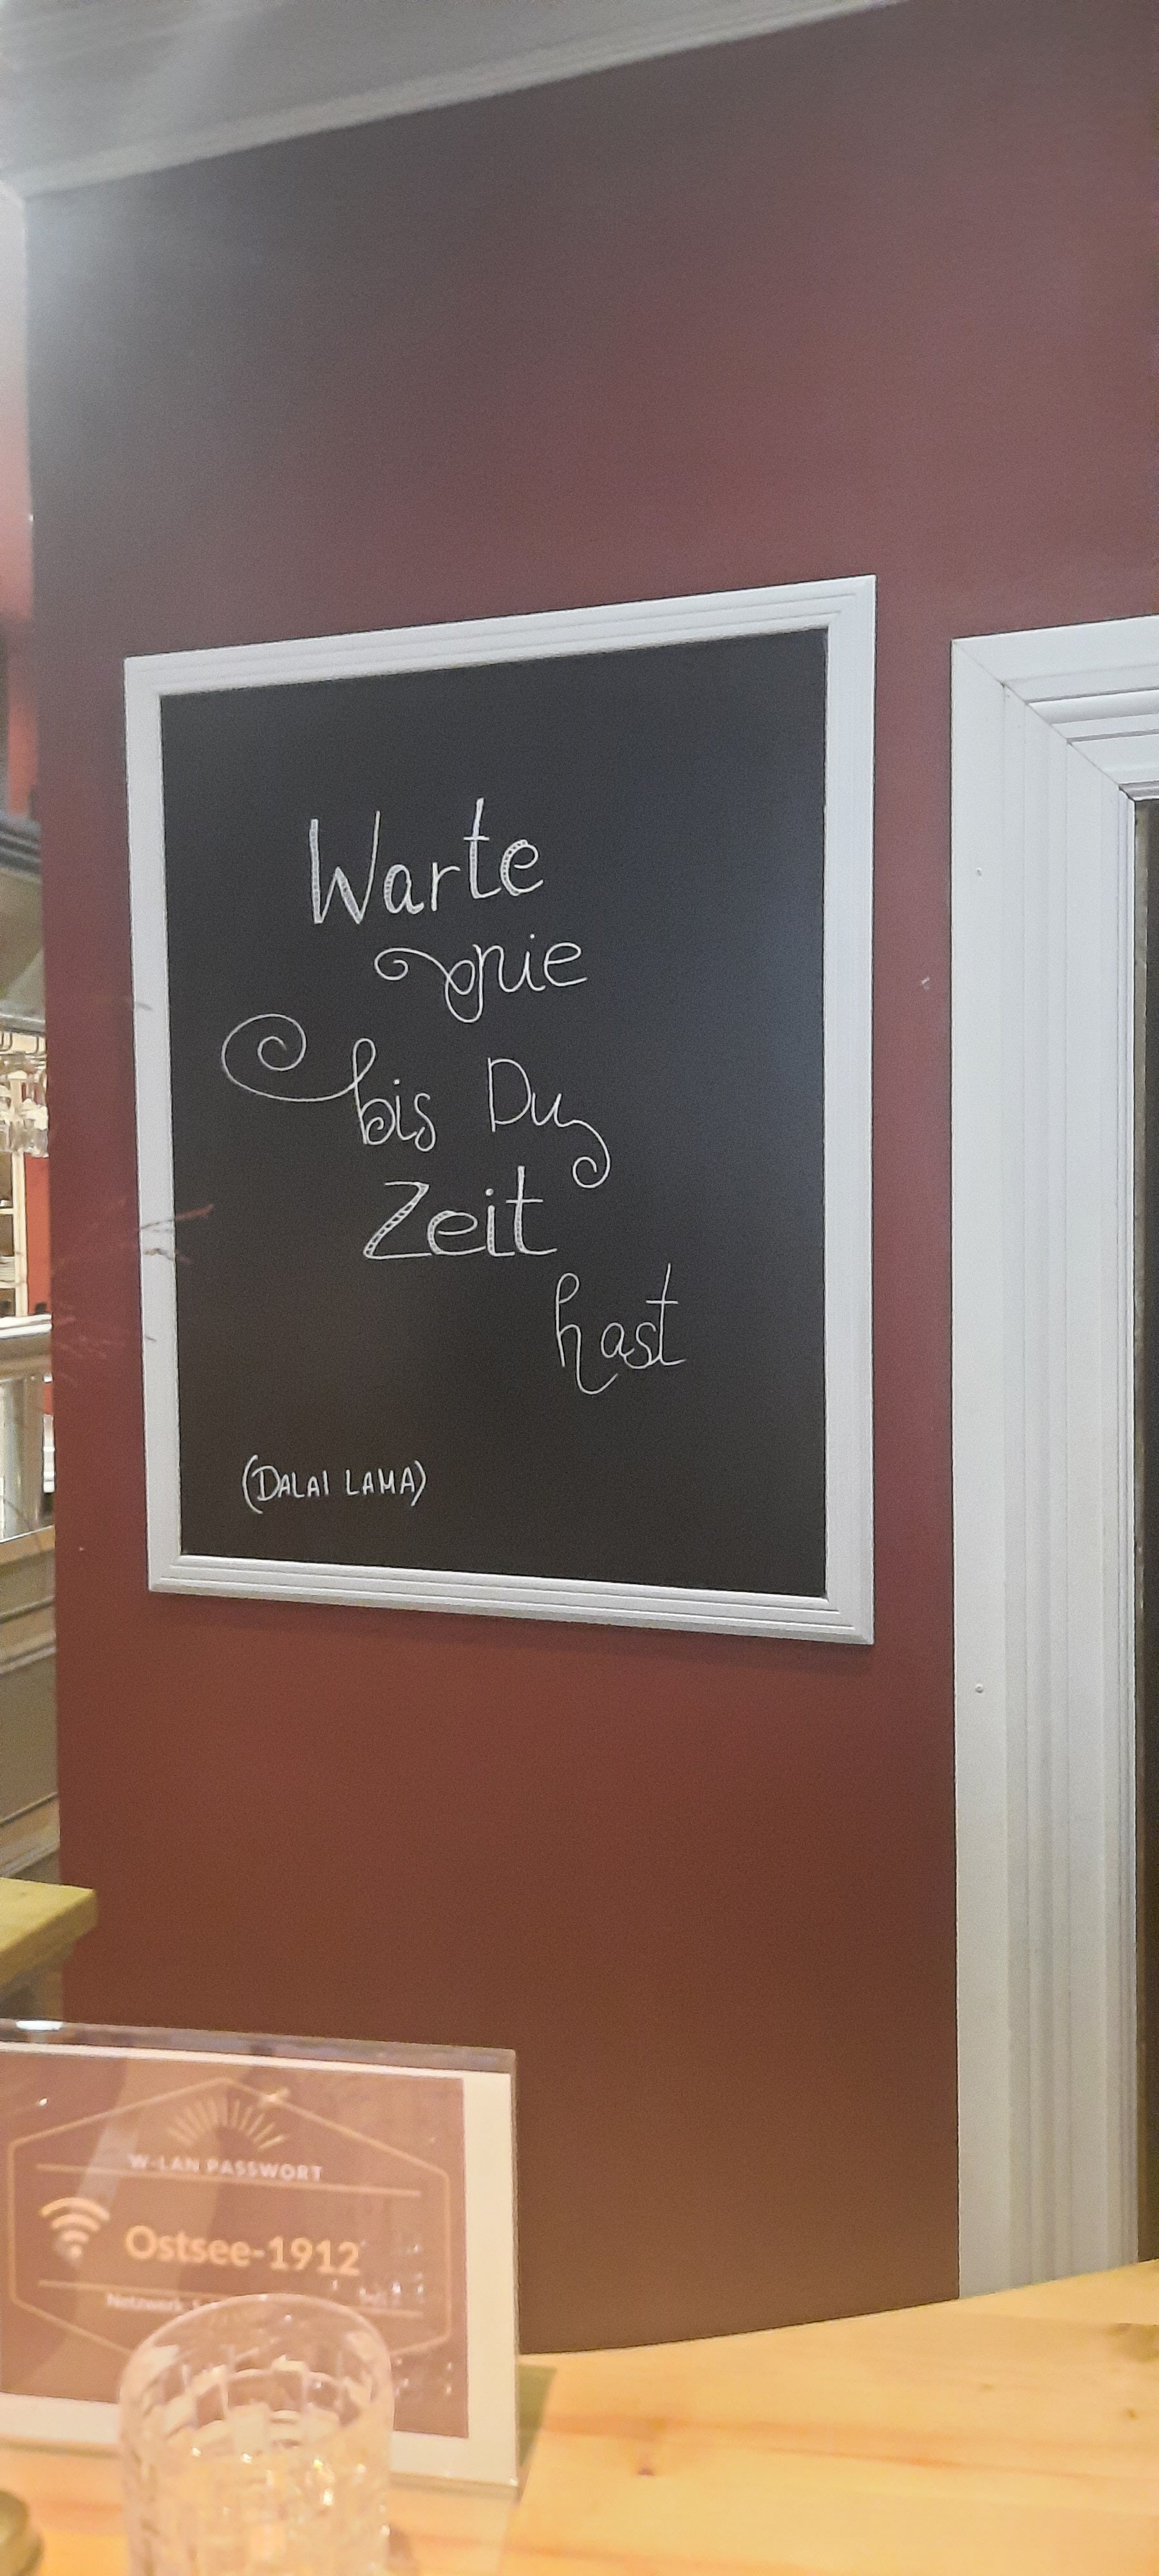 Warte
nie
bis Du
Zeit
hast
(DALAI LAMA)
W-LAN PASSWORT
Ostsee-1912
Netzwerk